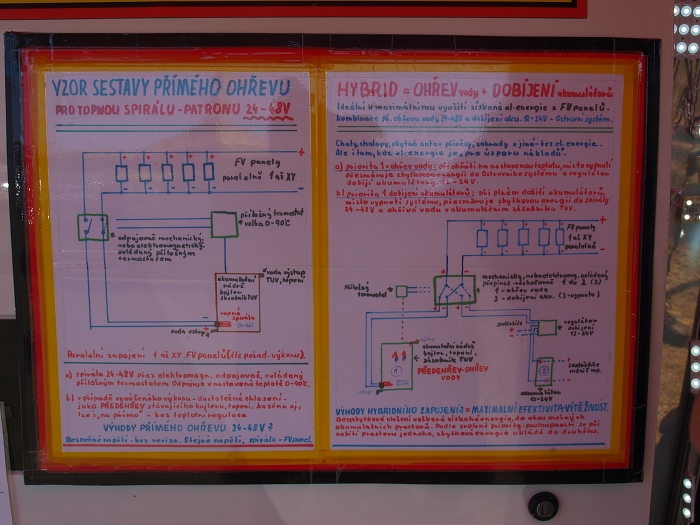 VZOR SESTAVY PŘÍMÉHO OHŘEVU
PRO TOPNOU SPIRÁLU - PATRONU 24-48V
+
FV panely
paralelně 1 až XY
-
příložný termostat
volba 0-90°C
odpojovač mechanický,
nebo elektromagnetický,
ovládaný příložným
termostatem
voda výstup
TUV, topení
akumulační
nádrž
bojler
zásobník TUV
topná
spirála
voda vstup
Paralelní zapojení 1 až XY FV panelů (dle požad. výkonu).
a) spirála 24-48V přes elektromagn. odpojovač, ovládaný
příložným termostatem. Odpojuje v nastavené teplotě 0-90°C.
b) v případě
jako PŘEDEHŘEV stávajícího bojleru, topení, bazénu aj,
lze i „na přímo“ - bez teplotní regulace
VÝHODY PŘÍMÉHO OHŘEVU 24-48V?
Bezpečné napětí - bez revize. Stejné napětí, spirála - FV panel.
HYBRID = OHŘEV vody + DOBÍJENÍ akumulátorů
Ideální k maximálnímu využití získané el. energie z FV panelů.
Kombinace př. ohřevu vody 24-48V a dobíjení aku. 12-24V - Ostrovní systém.
Chaty, chalupy, obytná auta, přívěsy, zahrady a jiná - bez el. energie.
Ale i tam, kde el. energie je, pro úsporu nákladů.
a) priorita 1 ohřev vody: při ohřátí na nastavenou teplotu, místo vypnutí
přesměruje zbytkovou energii do Ostrovního systému a regulátor
dobíjí akumulátory 12-24V
b) priorita 1 dobíjení akumulátorů: při plném dobití akumulátorů,
místo vypnutí systému, přesměruje zbytkovou energii do spirály
24-48V a ohřívá vodu v akumulačním zásobníku TUV.
+
FV panely
1 až XY
paralelně
-
mechanický, nebo elektromag. ovládaný
přepínač - rozbočovač 1 do 2 (3)
1 - ohřev vody
2 - dobíjení aku. (3 - vypnuto)
příložný
termostat
spotřebiče
regulátor
dobíjení
12-24V
akumulační nádrž
bojler, topení,
zásobník TUV
PŘEDEHŘEV-OHŘEV
VODY
akumulátor
12-24V
VÝHODY HYBRIDNÍHO ZAPOJENÍ? = MAXIMÁLNÍ EFEKTIVITA-VÝTĚŽNOST.